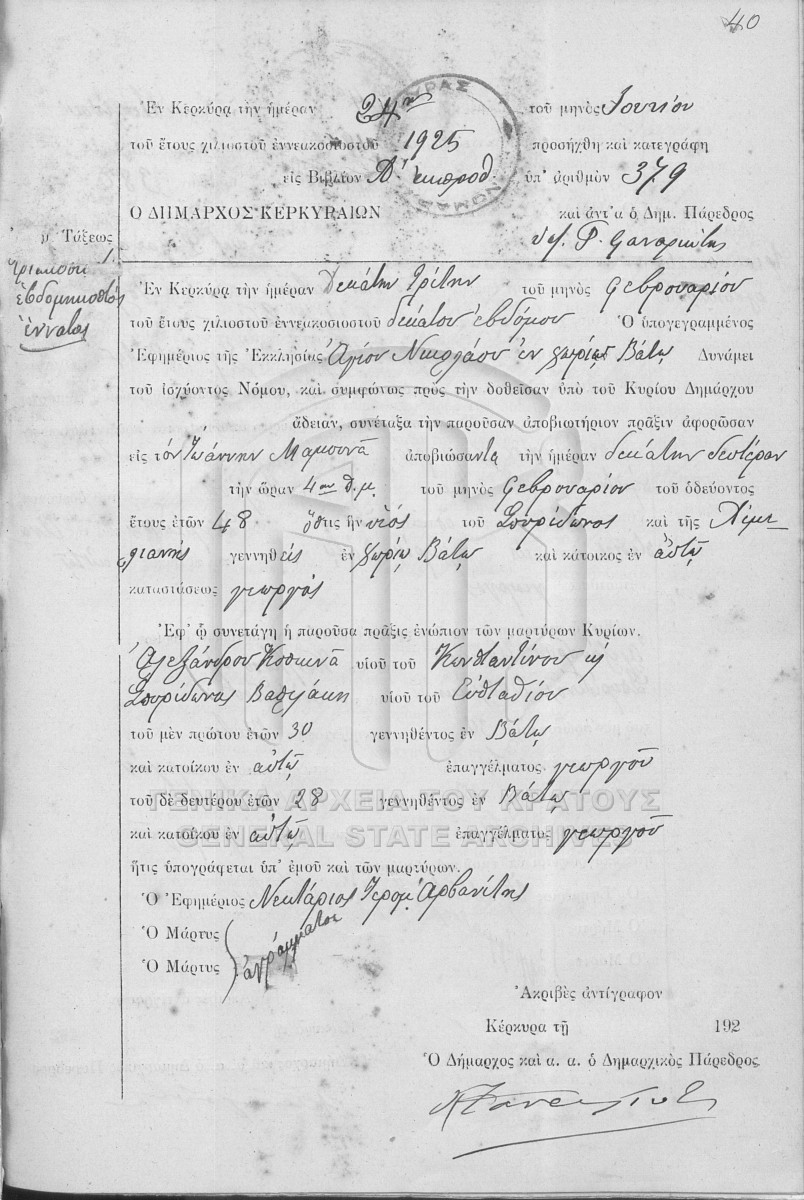 40
Ἐν Κερκύρᾳ τὴν ἡμέραν 24ην τοῦ μηνὸς Ἰουνίου
τοῦ ἔτους χιλιοστοῦ ἐννεακοσιοστοῦ 1925 προσήχθη καὶ κατεγράφη
εἰς Βιβλίον ὑπ' ἀριθμὸν 379
Ο ΔΗΜΑΡΧΟΣ ΚΕΡΚΥΡΑΙΩΝ καὶ ἀντ'α ὁ Δημ. Πάρεδρος
Τάξεως
τριακοσι
ἑβδομηκοστὸς
ἔννατος
Ἐν Κερκύρᾳ τὴν ἡμέραν Δεκάτην Τρίτην τοῦ μηνὸς Φεβρουαρίου
τοῦ ἔτους χιλιοστοῦ ἐννεακοσιοστοῦ δεκάτου ἑβδόμου Ὁ ὑπογεγραμμένος
Ἐφημέριος τῆς Ἐκκλησίας Ἁγίου Νικολάου ἐν χωρίῳ Βάτῳ Δυνάμει
τοῦ ἰσχύοντος Νόμου, καὶ συμφώνως πρὸς τὴν δοθεῖσαν ὑπὸ τοῦ Κυρίου Δημάρχου
ἄδειαν, συνέταξα τὴν παροῦσαν ἀποβιωτήριον πρᾶξιν ἀφορῶσαν
εἰς τὸν Ἰωάννην Μαμουνᾶ ἀποβιώσαντα τὴν ἡμέραν δεκάτην δευτέραν
τὴν ὥραν 4ην π.μ. τοῦ μηνὸς Φεβρουαρίου τοῦ ὁδεύοντος
ἔτους ἐτῶν 48 ὅστις ἦν υἱὸς τοῦ Σπυρίδωνος καὶ τῆς
γεννηθεὶς ἐν χωρίῳ Βάτῳ καὶ κάτοικος ἐν αὐτῷ
καταστάσεως γεωργὸς
Ἐφ' ᾧ συνετάγη ἡ παροῦσα πρᾶξις ἐνώπιον τῶν μαρτύρων Κυρίων.
Ἀλεξάνδρου Κοσκινᾶ υἱοῦ τοῦ Κωνσταντίνου κ
Σπυρίδωνος Βασιλάκη υἱοῦ τοῦ Εὐσταθίου
τοῦ μὲν πρώτου ἐτῶν 30 γεννηθέντος ἐν Βάτῳ
καὶ κατοίκου ἐν αὐτῷ ἐπαγγέλματος γεωργοῦ
τοῦ δὲ δευτέρου ἐτῶν 28 γεννηθέντος ἐν Βάτῳ
ΓΕΝΙΚΑ ΑΡΧΕΙΑ ΤΟΥ ΚΡΑΤΟΥΣ
καὶ κατοίκου ἐν αὐτῷ ἐπαγγέλματος γεωργοῦ
GENERAL STATE ARCHIVES
ἥτις ὑπογράφεται ὑπ' ἐμοῦ καὶ τῶν μαρτύρων.
Ὁ Ἐφημέριος Νεκτάριος Ἱερομ. Ἀρβανίτης
Ὁ Μάρτυς
Ὁ Μάρτυς ἀγράμματοι
Ἀκριβὲς ἀντίγραφον
Κέρκυρα τῇ 192
Ὁ Δήμαρχος καὶ α. α. ὁ Δημαρχικὸς Πάρεδρος